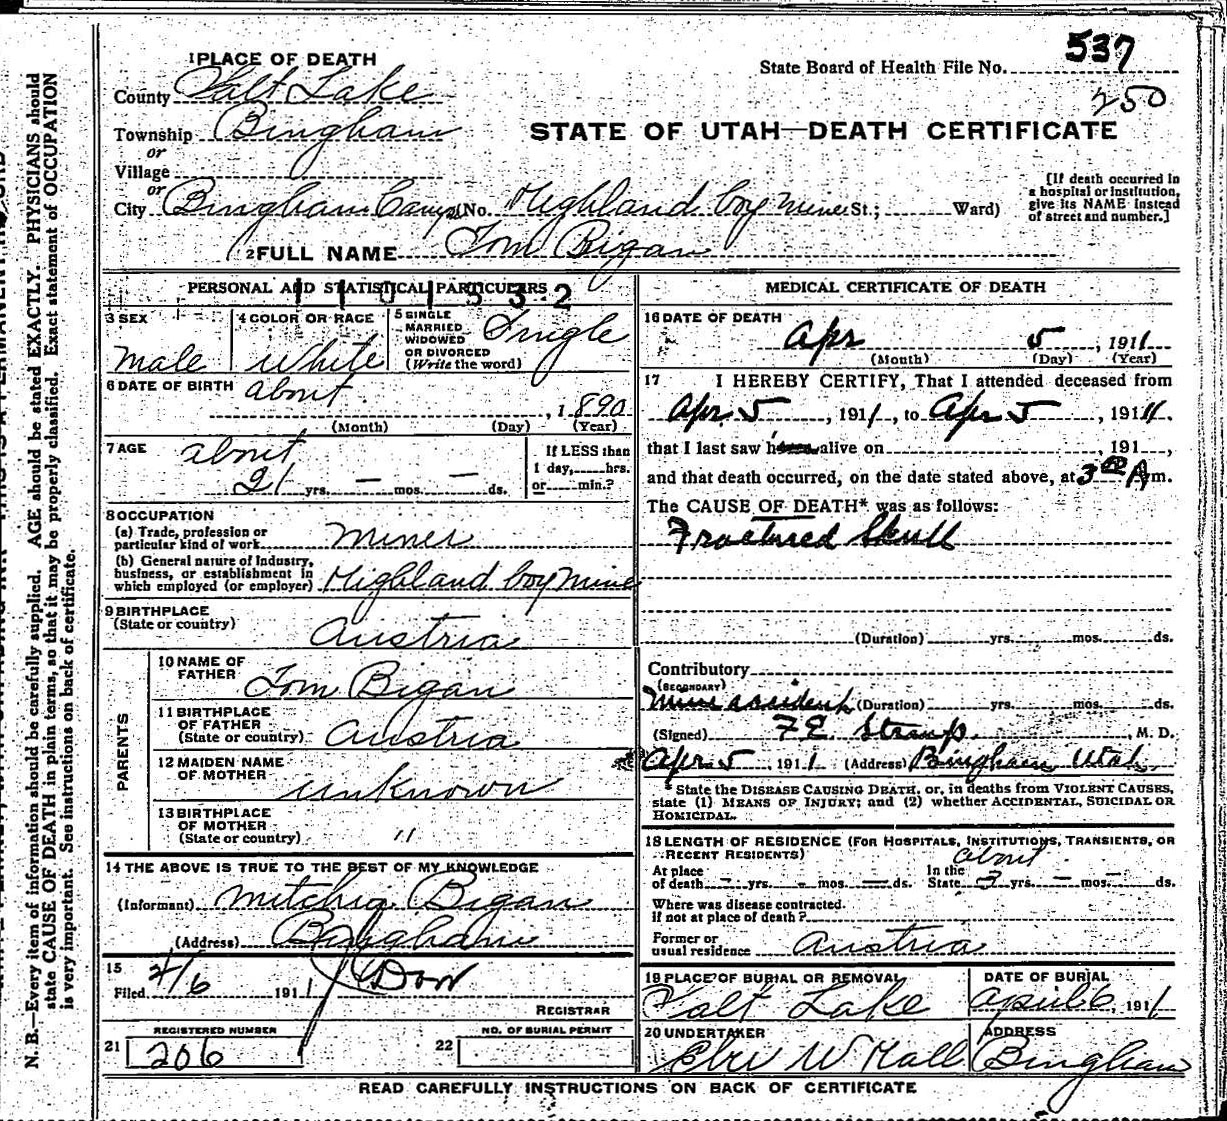 1 PLACE OF DEATH
State Board of Health File No. 537
250
County Salt Lake
Township Bingham
or
Village
or
STATE OF UTAH—DEATH CERTIFICATE
City Bingham Camp (No. Highland boy mine St.; Ward)
[If death occurred in
a hospital or institution,
give its NAME instead
of street and number.]
2 FULL NAME Tom Bigan
PERSONAL AND STATISTICAL PARTICULARS
1101532
3 SEX
male
4 COLOR OR RACE
White
5 SINGLE
MARRIED
WIDOWED
OR DIVORCED
(Write the word)
Single
6 DATE OF BIRTH about
, 1890
(Month) (Day) (Year)
7 AGE about
21 yrs. — mos. — ds.
If LESS than
1 day, hrs.
or min.?
8 OCCUPATION
(a) Trade, profession or
particular kind of work miner
(b) General nature of Industry,
business, or establishment in
which employed (or employer) Highland boy mine
9 BIRTHPLACE
(State or country) Austria
PARENTS
10 NAME OF
FATHER Tom Bigan
11 BIRTHPLACE
OF FATHER
(State or country) Austria
12 MAIDEN NAME
OF MOTHER unknown
13 BIRTHPLACE
OF MOTHER
(State or country) "
14 THE ABOVE IS TRUE TO THE BEST OF MY KNOWLEDGE
(Informant) Mitchia Bigan
(Address) Bingham
15
Filed 4/6 1911 Dow
REGISTRAR
REGISTERED NUMBER
21 206
NO. OF BURIAL PERMIT
22
MEDICAL CERTIFICATE OF DEATH
16 DATE OF DEATH
Apr 5, 1911
(Month) (Day) (Year)
17 I HEREBY CERTIFY, That I attended deceased from
Apr 5, 1911, to Apr 5, 1911.
that I last saw h alive on 191,
and that death occurred, on the date stated above, at 3 00 A m.
The CAUSE OF DEATH* was as follows:
Fractured Skull
(Duration) yrs. mos. ds.
Contributory
(SECONDARY)
Mine accident (Duration) yrs. mos. ds.
(Signed) F E Straup, M. D.
Apr 5, 1911 (Address) Bingham Utah
* State the DISEASE CAUSING DEATH, or, in deaths from VIOLENT CAUSES,
state (1) MEANS OF INJURY; and (2) whether ACCIDENTAL, SUICIDAL OR
HOMICIDAL.
18 LENGTH OF RESIDENCE (FOR HOSPITALS, INSTITUTIONS, TRANSIENTS, OR
RECENT RESIDENTS) about
At place
of death — yrs. — mos. — ds.
In the
State 3 yrs. — mos. — ds.
Where was disease contracted.
if not at place of death?
Former or
usual residence Austria
19 PLACE OF BURIAL OR REMOVAL
Salt Lake
DATE OF BURIAL
April 6, 1911
20 UNDERTAKER
W Hall
ADDRESS
Bingham
READ CAREFULLY INSTRUCTIONS ON BACK OF CERTIFICATE
N. B.—Every item of information should be carefully supplied. AGE should be stated EXACTLY. PHYSICIANS should
state CAUSE OF DEATH in plain terms, so that it may be properly classified. Exact statement of OCCUPATION
is very important. See instructions on back of certificate.